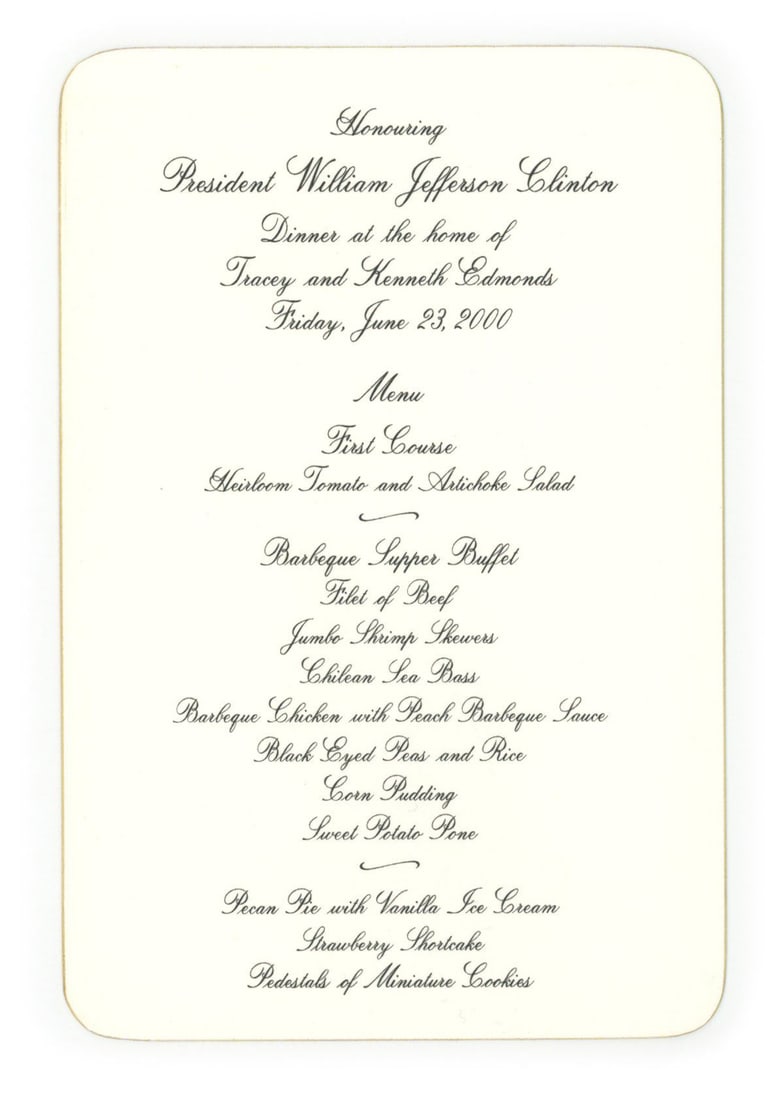 Honouring
President William Jefferson Clinton
Dinner at the home of
Tracey and Kenneth Edmonds
Friday, June 23, 2000
Menu
First Course
Heirloom Tomato and Artichoke Salad
Barbeque Supper Buffet
Filet of Beef
Jumbo Shrimp Skewers
Chilean Sea Bass
Barbeque Chicken with Peach Barbeque Sauce
Black Eyed Peas and Rice
Corn Pudding
Sweet Potato Pone
Pecan Pie with Vanilla Ice Cream
Strawberry Shortcake
Pedestals of Miniature Cookies